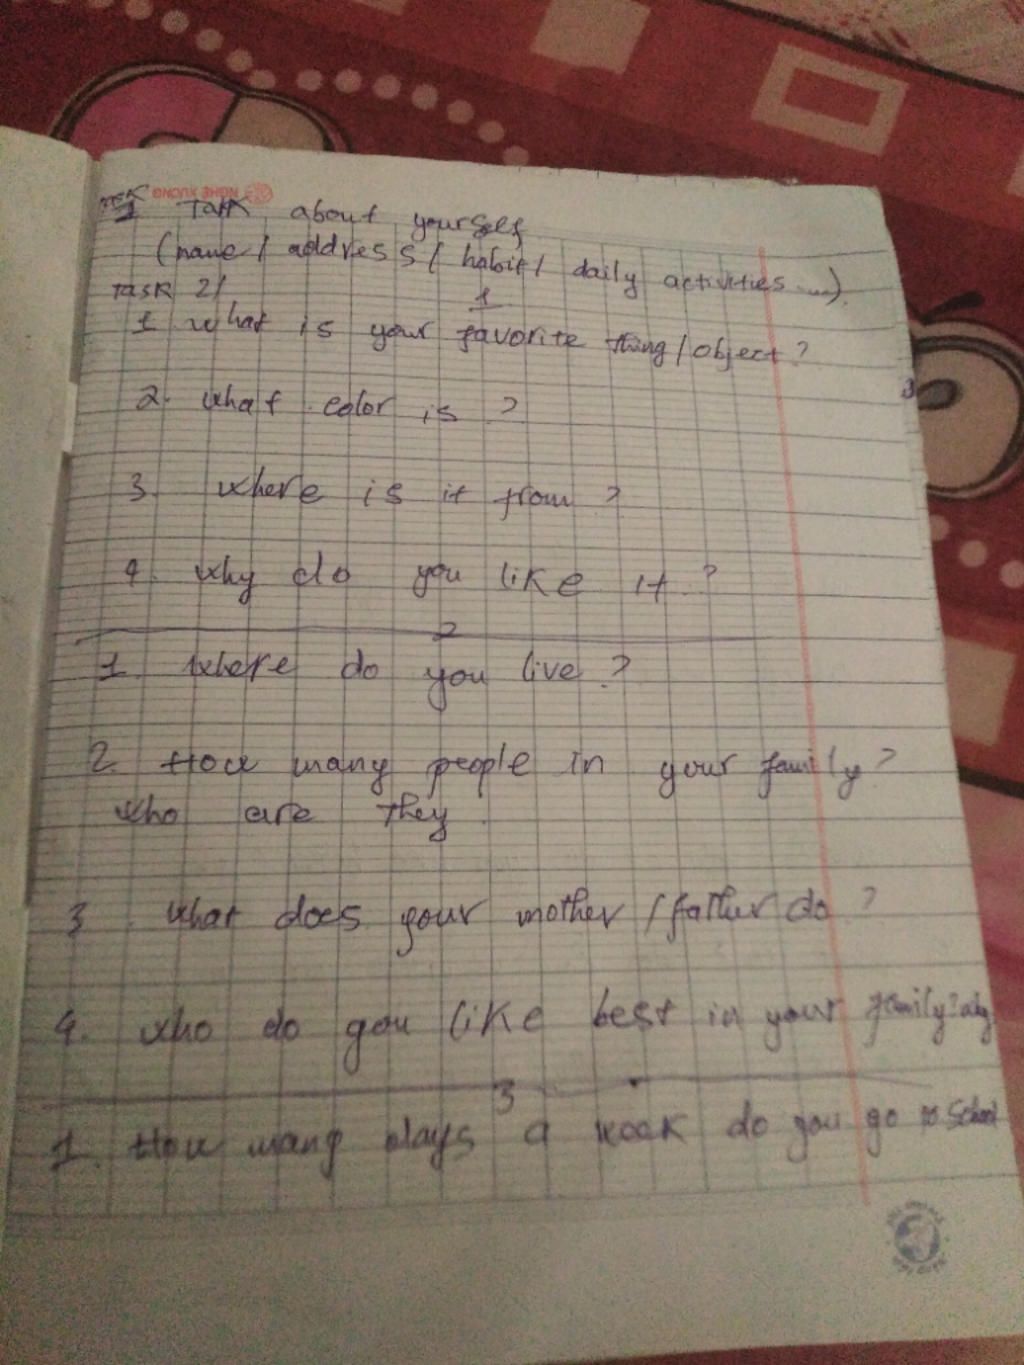 Task
1 Talk about yourself
(name / address / habit / daily activities ...).
Task 2/ 1
1 what is your favorite thing / object ?
2. what color is ?
3. where is it from ?
4. why do you like it ?
2
1. where do you live ?
2. How many people in your family ?
who are they
3. what does your mother / father do ?
4. who do you like best in your family?
3
1. How many days a week do you go to school